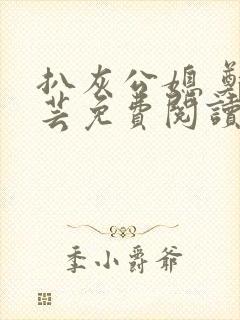 扒灰公媳 鄭
芸免費閱讀
季小爵爷